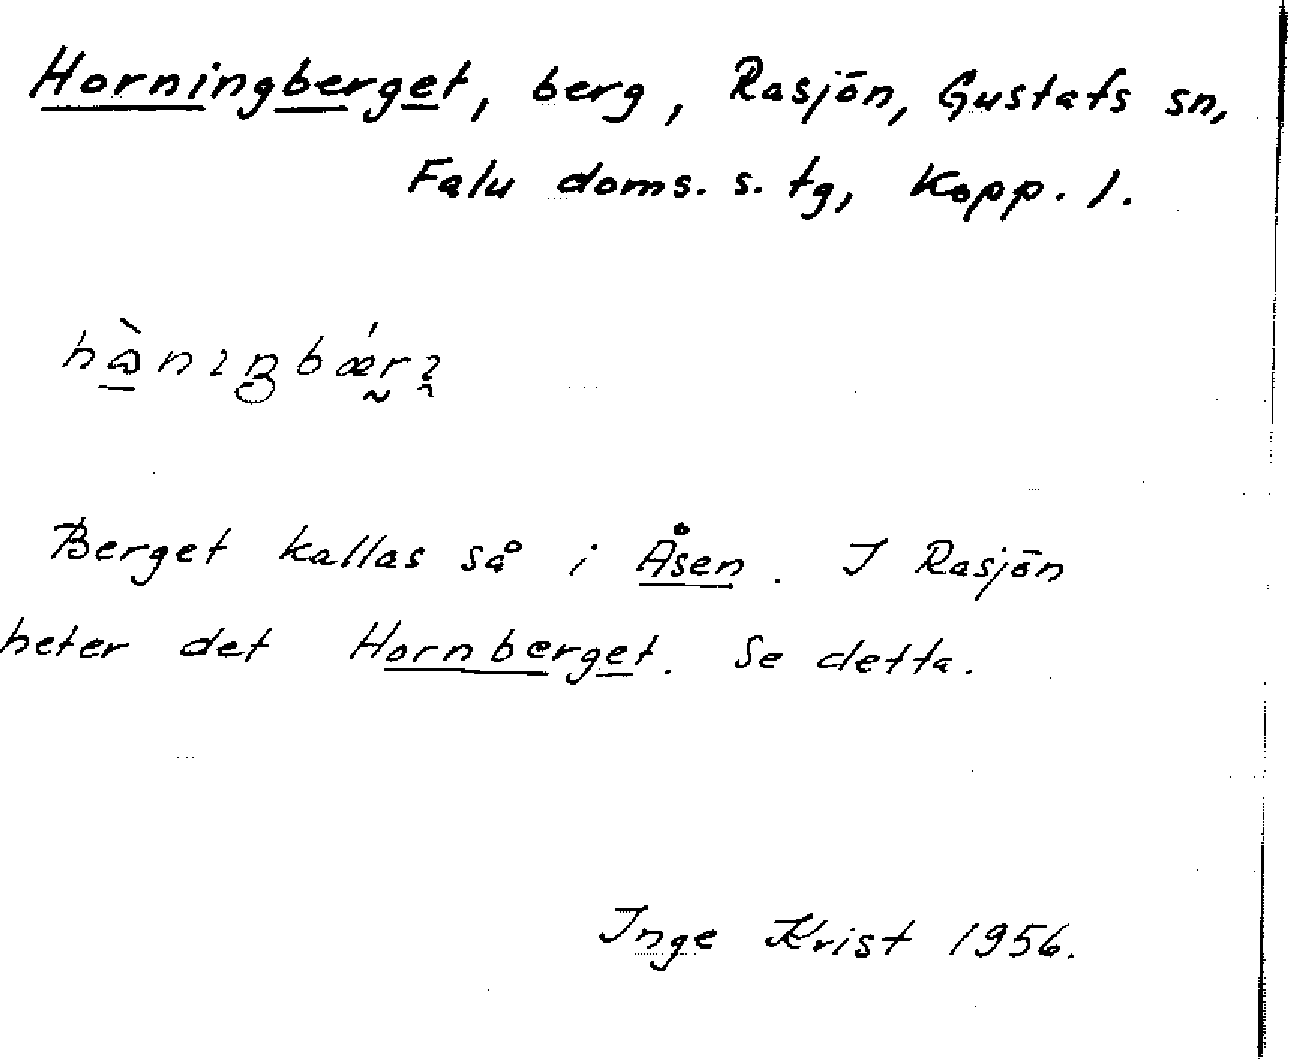 Horningberget, berg, Rasjön, Gustafs sn,
Falu doms. s. tg, Kopp. l.
Berget kallas så i Åsen. I Rasjön
heter det Hornberget. Se detta.
Inge Krist 1956.